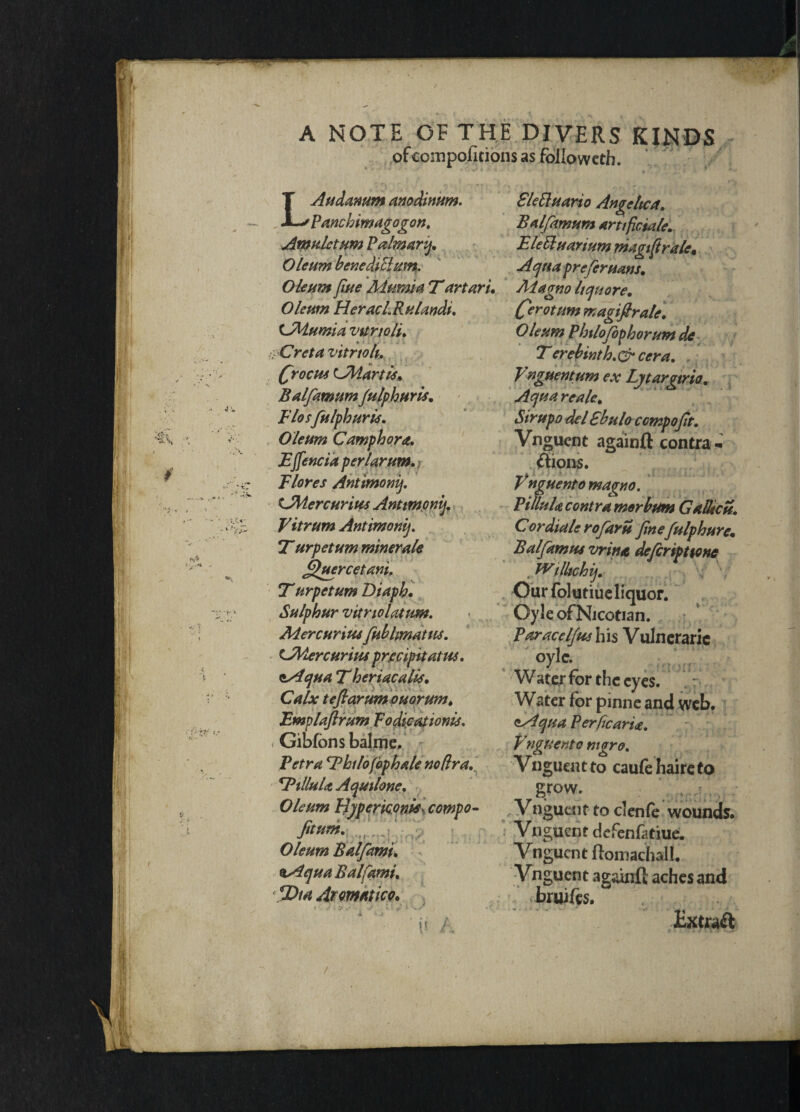 A NOTE OF THE DIVERS KINDS
of compoſitions as followeth.
LAudanum anodinum.
Panchimagogon.
Amuletum Palmarij.
Oleum benedictum.
Oleum ſiue Mumia Tartari.
Oleum Heracl.Rulandi.
Mumia vitrioli.
Creta vitrioli.
Crocus Martis.
Balſamum ſulphuris.
Flos ſulphuris.
Oleum Camphoræ.
Eſſencia perlarum.
Flores Antimonij.
Mercurius Antimonij.
Vitrum Antimonij.
Turpetum minerale
Quercetani.
Turpetum Diaph.
Sulphur vitriolatum.
Mercurius ſublimatus.
Mercurius precipitatus.
Aqua Theriacalis.
Calx teſtarum ouorum.
Emplaſtrum Fodicationis.
Gibſons balme.
Petra Philoſophale noſtra.
Pillula Aquilone.
Oleum Hypericonis compo-
ſitum.
Oleum Balſami.
Aqua Balſami.
Dia Aromatico.
Electuario Angelica.
Balſamum artificiale.
Electuarium magiſtrale.
Aqua preſeruans.
Magno liquore.
Cerotum magiſtrale.
Oleum Philoſophorum de
Terebinth.& cera.
Vnguentum ex Lytargirio.
Aqua reale.
Sirupo del Ebulo compoſit.
Vnguent againſt contra-
ctions.
Vnguento magno.
Pillula contra morbum Gallicū.
Cordiale roſarū ſine ſulphure.
Balſamus vrinæ deſcriptione
Willichij.
Our ſolutiue liquor.
Oyle of Nicotian.
Paracelſus his Vulnerarie
oyle.
Water for the eyes.
Water for pinne and web.
Aqua Perſicariæ.
Vnguento nigro.
Vnguent to cauſe haire to
grow.
Vnguent to clenſe wounds.
Vnguent defenſatiue.
Vnguent ſtomachall.
Vnguent againſt aches and
bruiſes.
Extract